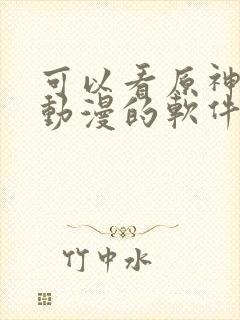 可以看原神
動漫的軟件
竹中水